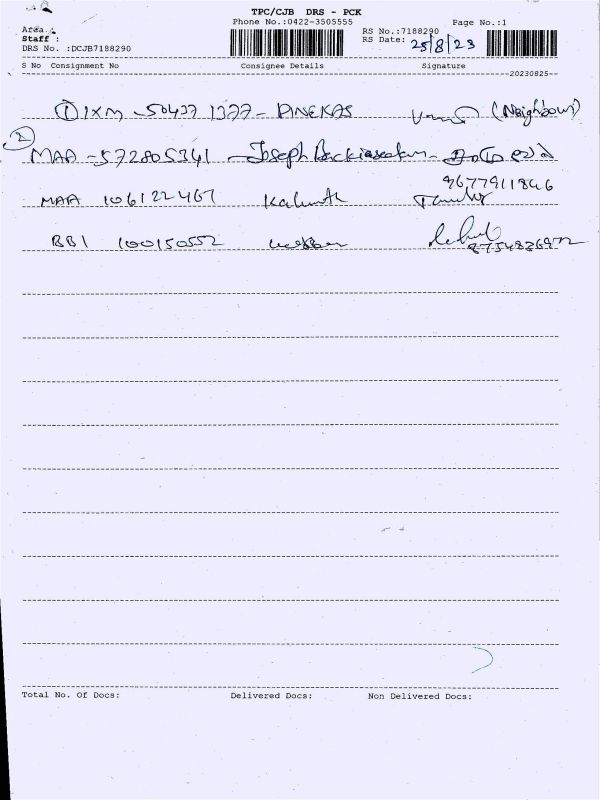 TPC/CJB DRS - PCK
Phone No.:0422-3505555
Page No.:1
Area
Staff :
DRS No. :DCJB7188290
RS No.:7188290
RS Date: 25/8/23
S No Consignment No Consignee Details Signature
20230825
① IXM - 504371377 - PINEKAS (Neighbour)
② MAA - 572805341 - Joseph
9677911846
MAA 106122467
BBI 100150552
8754836972
Total No. Of Docs: Delivered Docs: Non Delivered Docs: